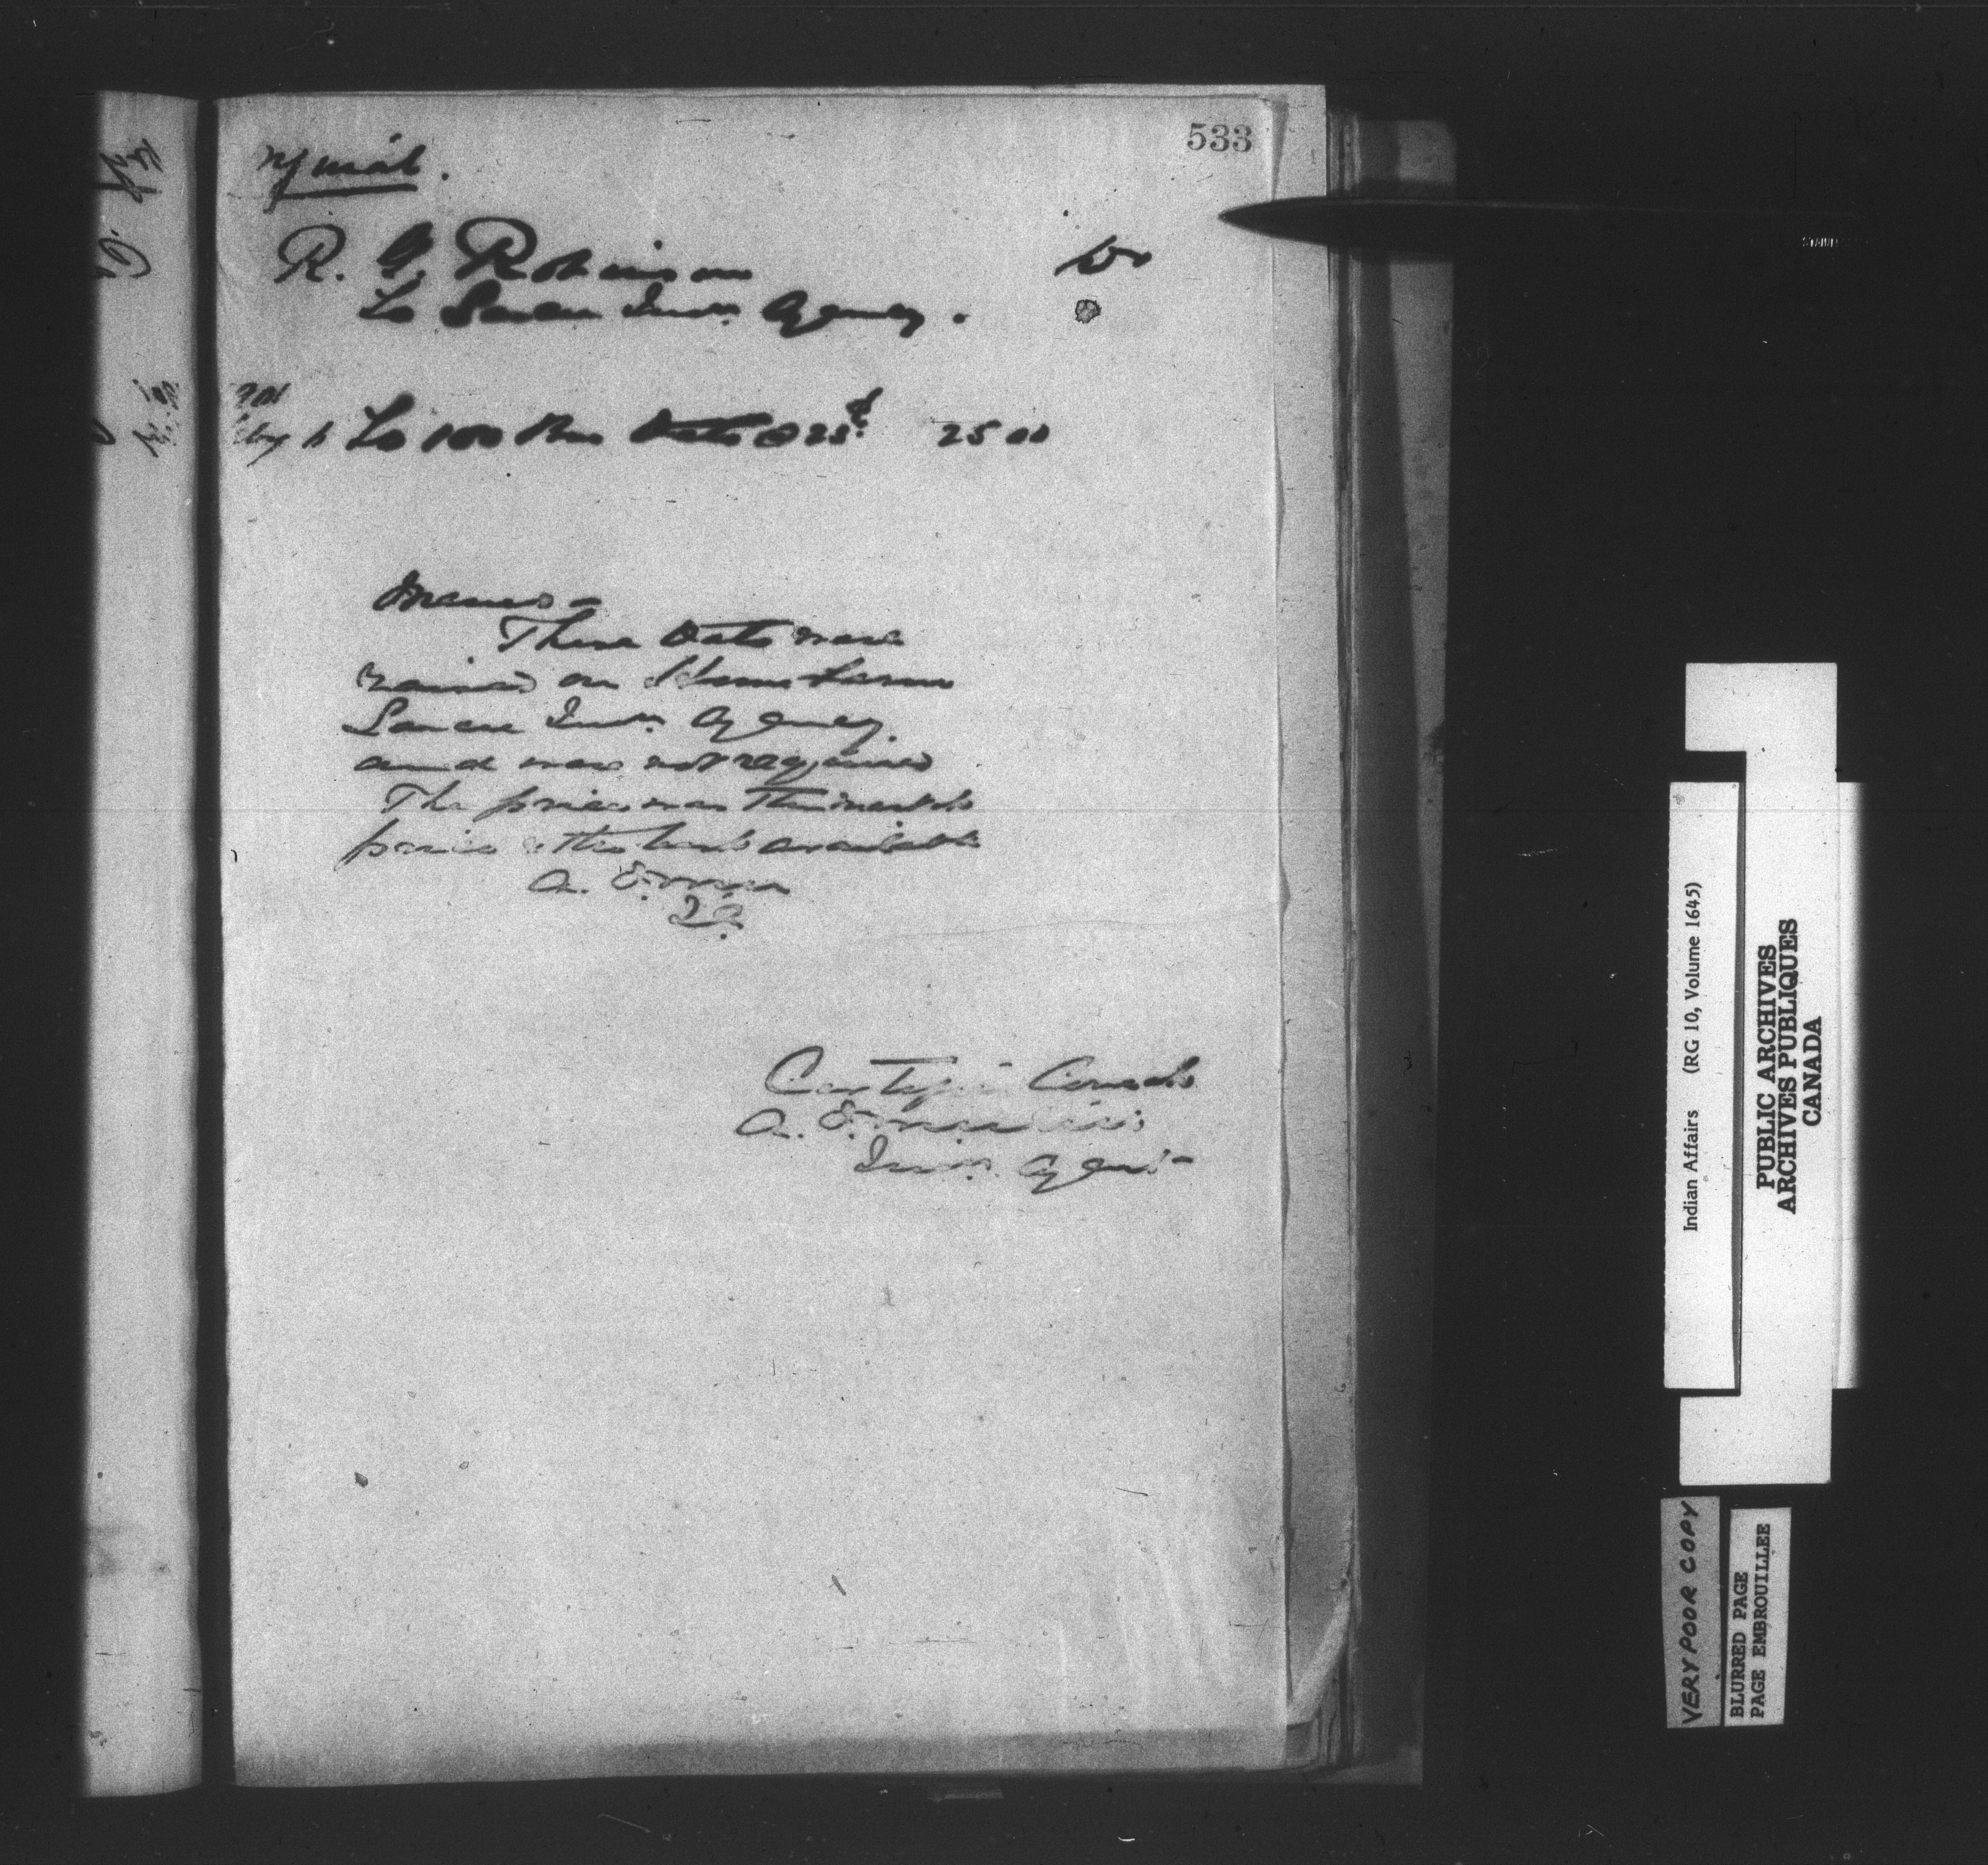 533
R. G. Robinson Dr
To Sarcee Indn. Agency.
To 100 Bus Oats @ 25¢ 25 00
Memo –
These Oats were
raised on Home Farm
Sarcee Indn. Agency.
and were not required
The price was the market
price & the best available
A. E.
I.A.
Certified Correct
A. E.
Indn. Agent –
Indian Affairs (RG 10, Volume 1645)
PUBLIC ARCHIVES
ARCHIVES PUBLIQUES
CANADA
VERY POOR COPY
BLURRED PAGE
PAGE EMBROUILLEE